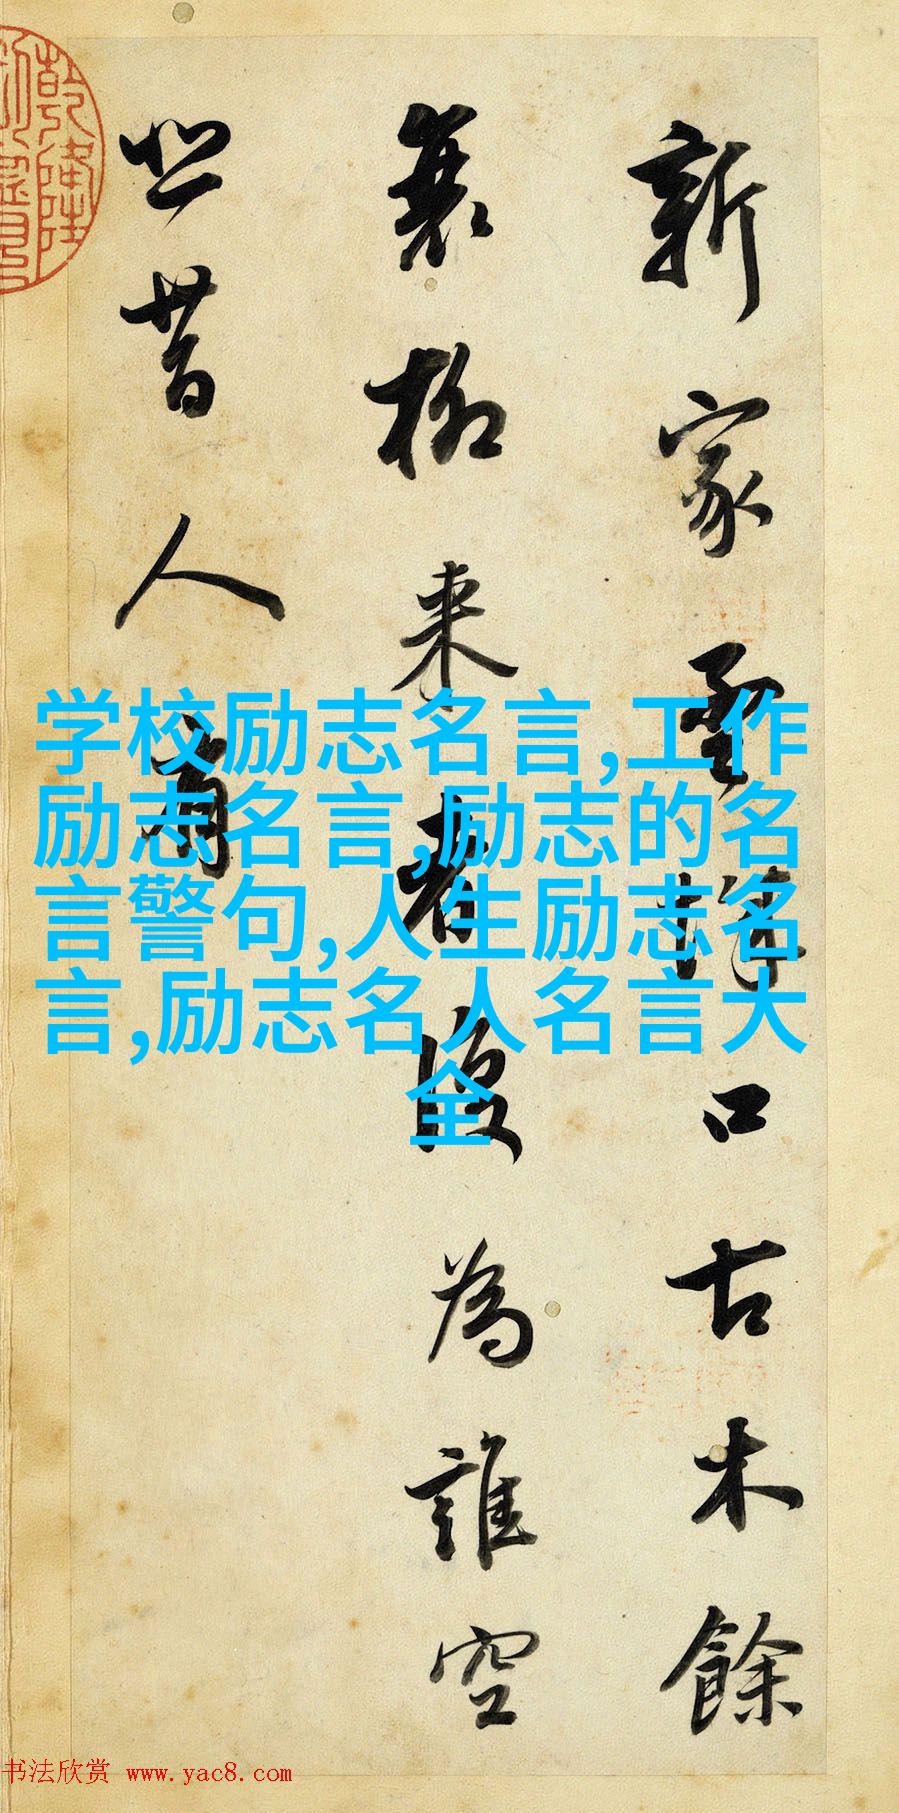 新家孟城口古木餘
衰柳来者復為誰空
悲昔人有
乾隆
学校励志名言,工作
励志名言,励志的名
言警句,人生励志名
言,励志名人名言大
全
书法欣赏 www.yac8.com